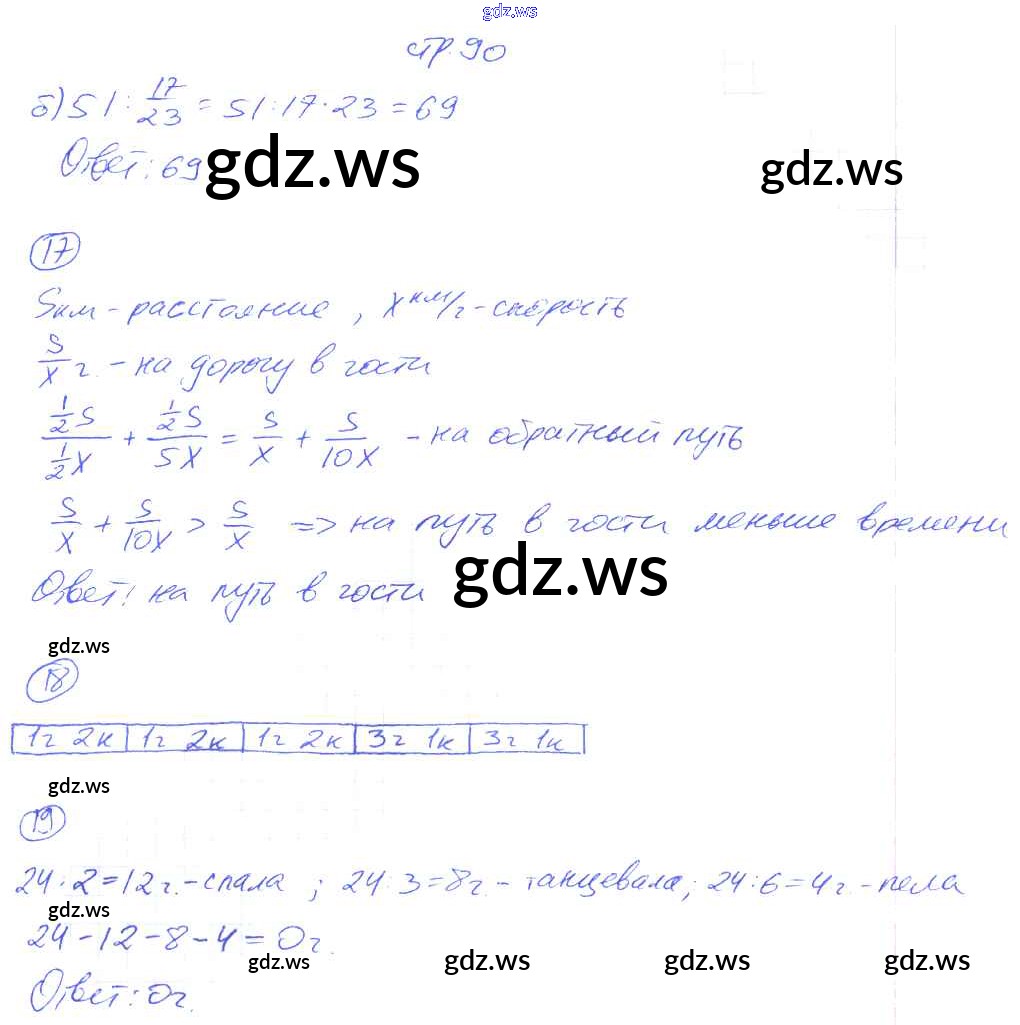 gdz.ws
стр. 90
б) 51 : 17/23 = 51 : 17 · 23 = 69
Ответ: 69
gdz.ws
gdz.ws
17
S км - расстояние, x км/ч - скорость
S/x ч. - на дорогу в гости
(1/2 S)/(1/2 x) + (1/2 S)/(5x) = S/x + S/10x - на обратный путь
S/x + S/10x > S/x => на путь в гости меньше времени
Ответ: на путь в гости
gdz.ws
gdz.ws
18
1г 2к | 1г 2к | 1г 2к | 3г 1к | 3г 1к
gdz.ws
19
24 : 2 = 12 ч. - спала ; 24 : 3 = 8 ч. - танцевала; 24 : 6 = 4 ч - пела
gdz.ws
24 - 12 - 8 - 4 = 0 ч.
gdz.ws gdz.ws gdz.ws gdz.ws
Ответ: 0 ч.